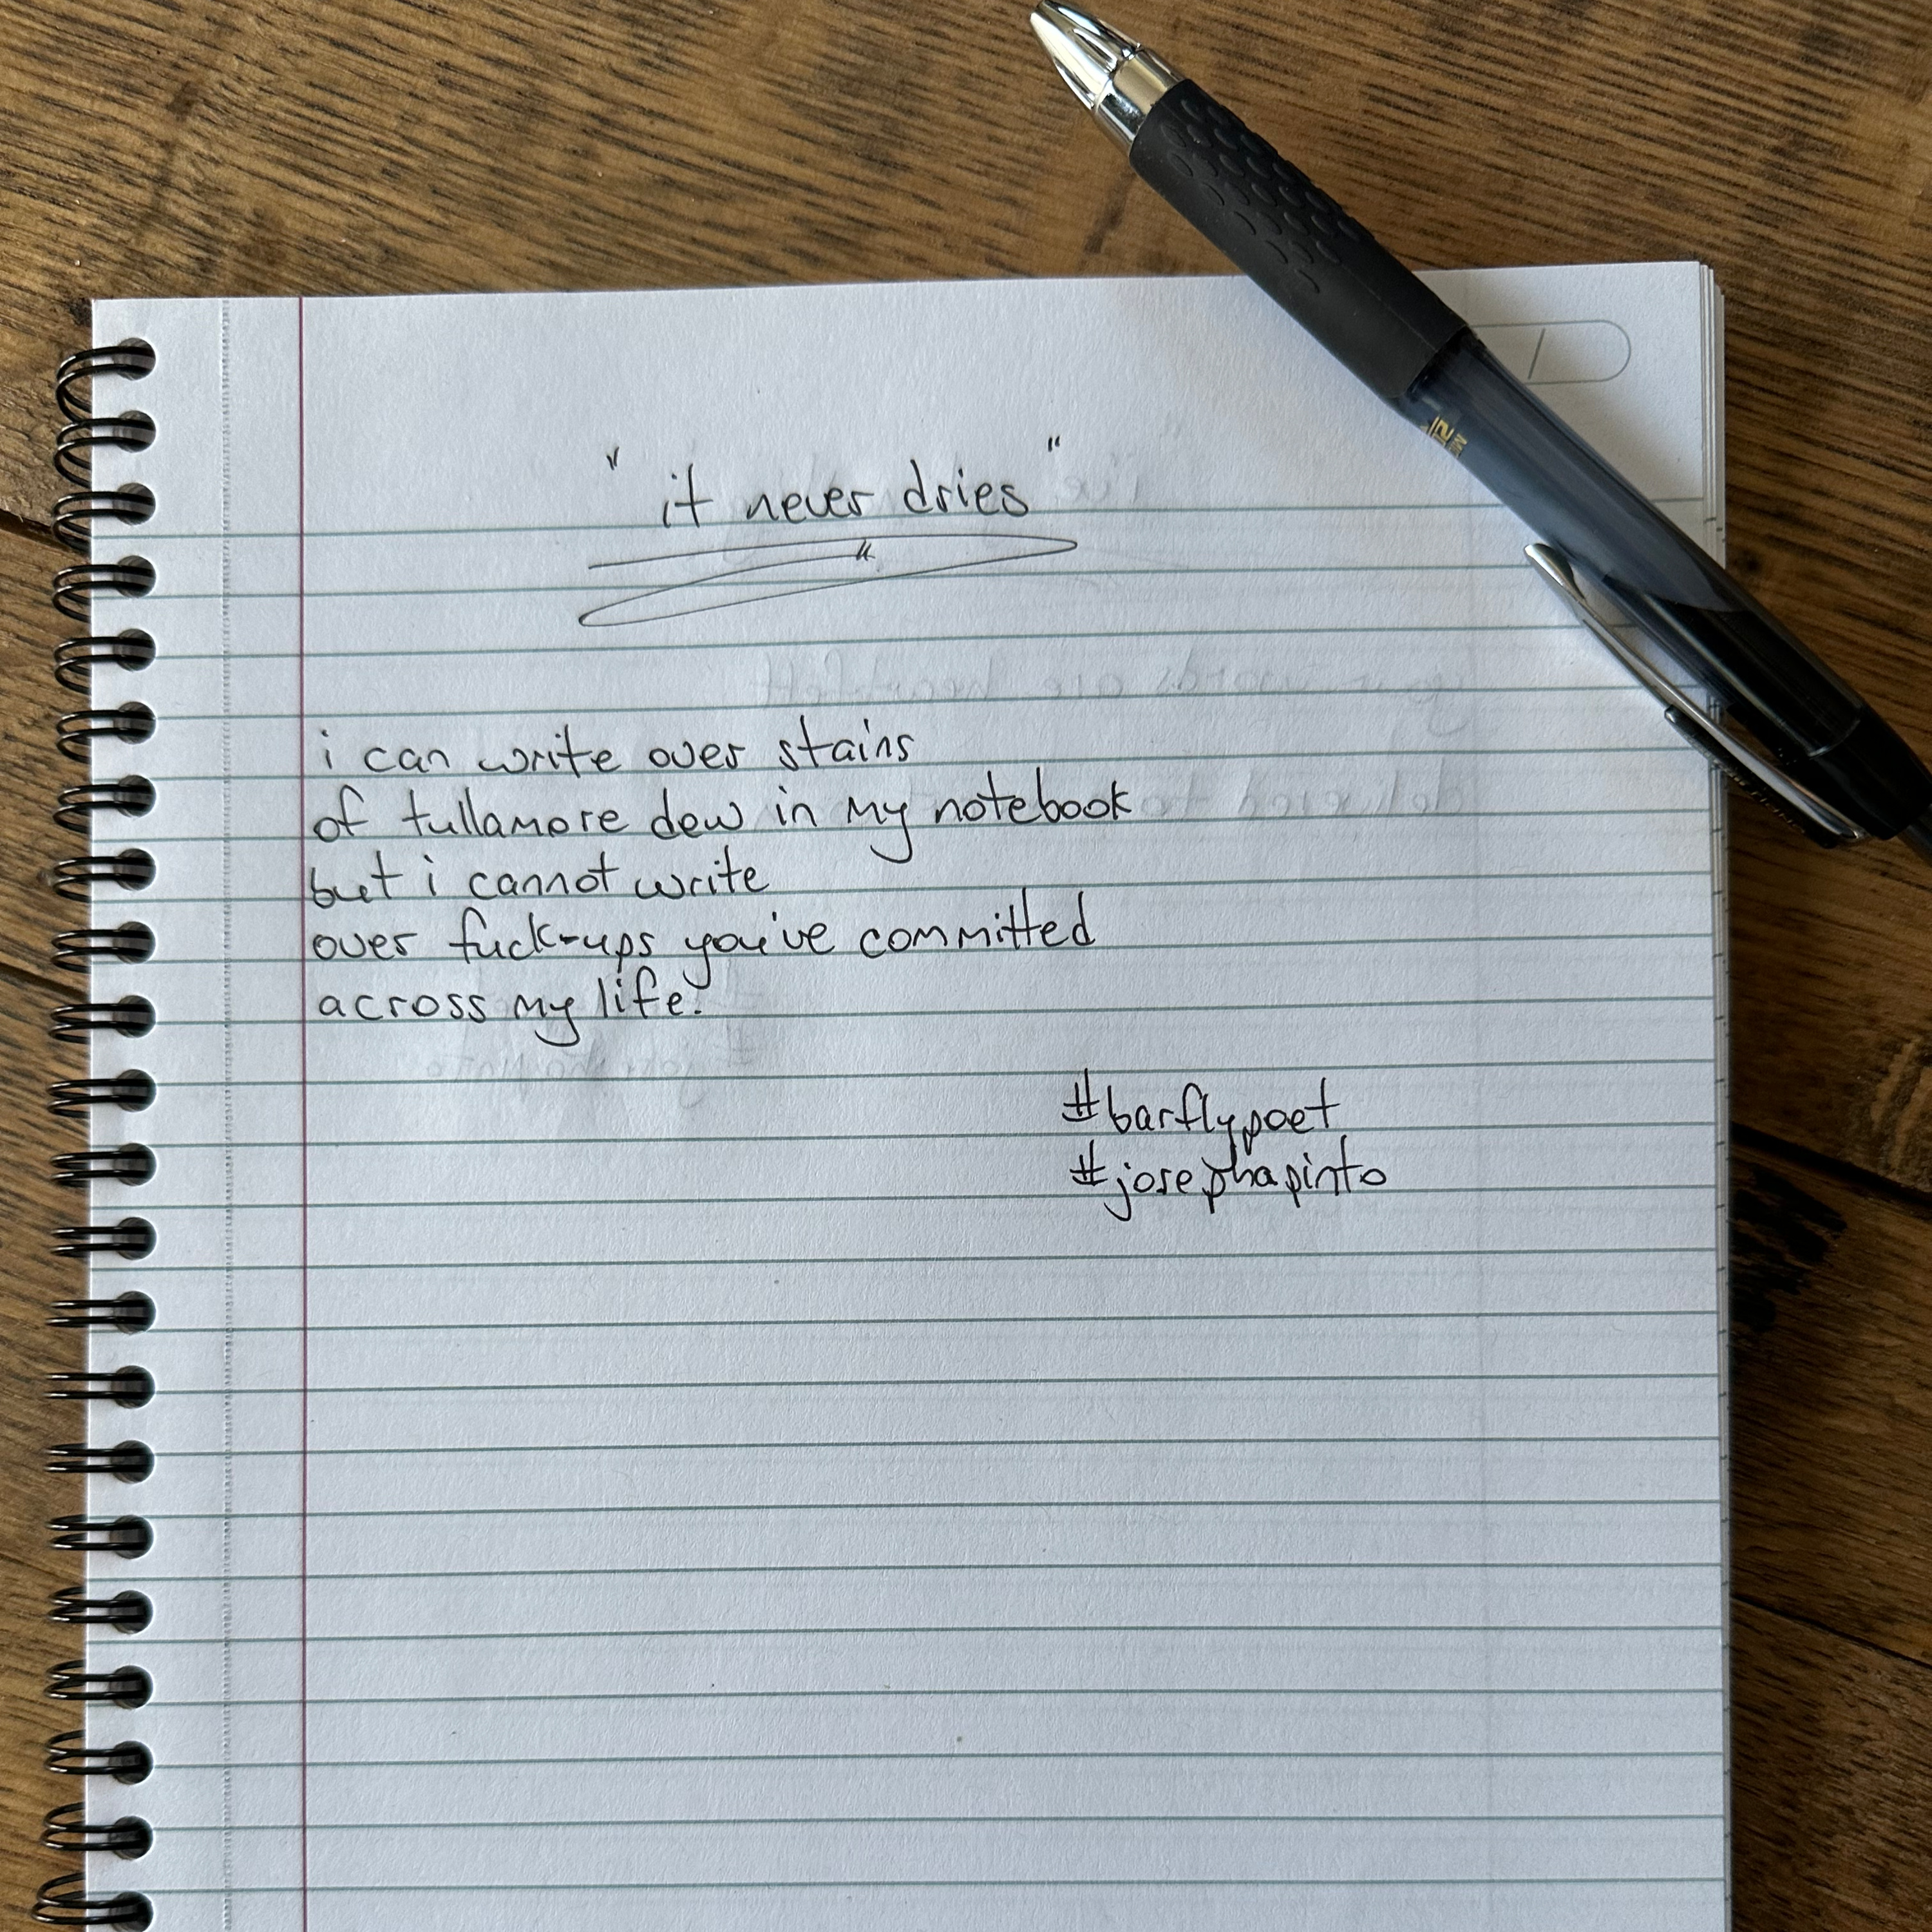 "it never dries"
i can write over stains
of tullamore dew in my notebook
but i cannot write
over fuck-ups you've committed
across my life.
#barflypoet
#josephapinto